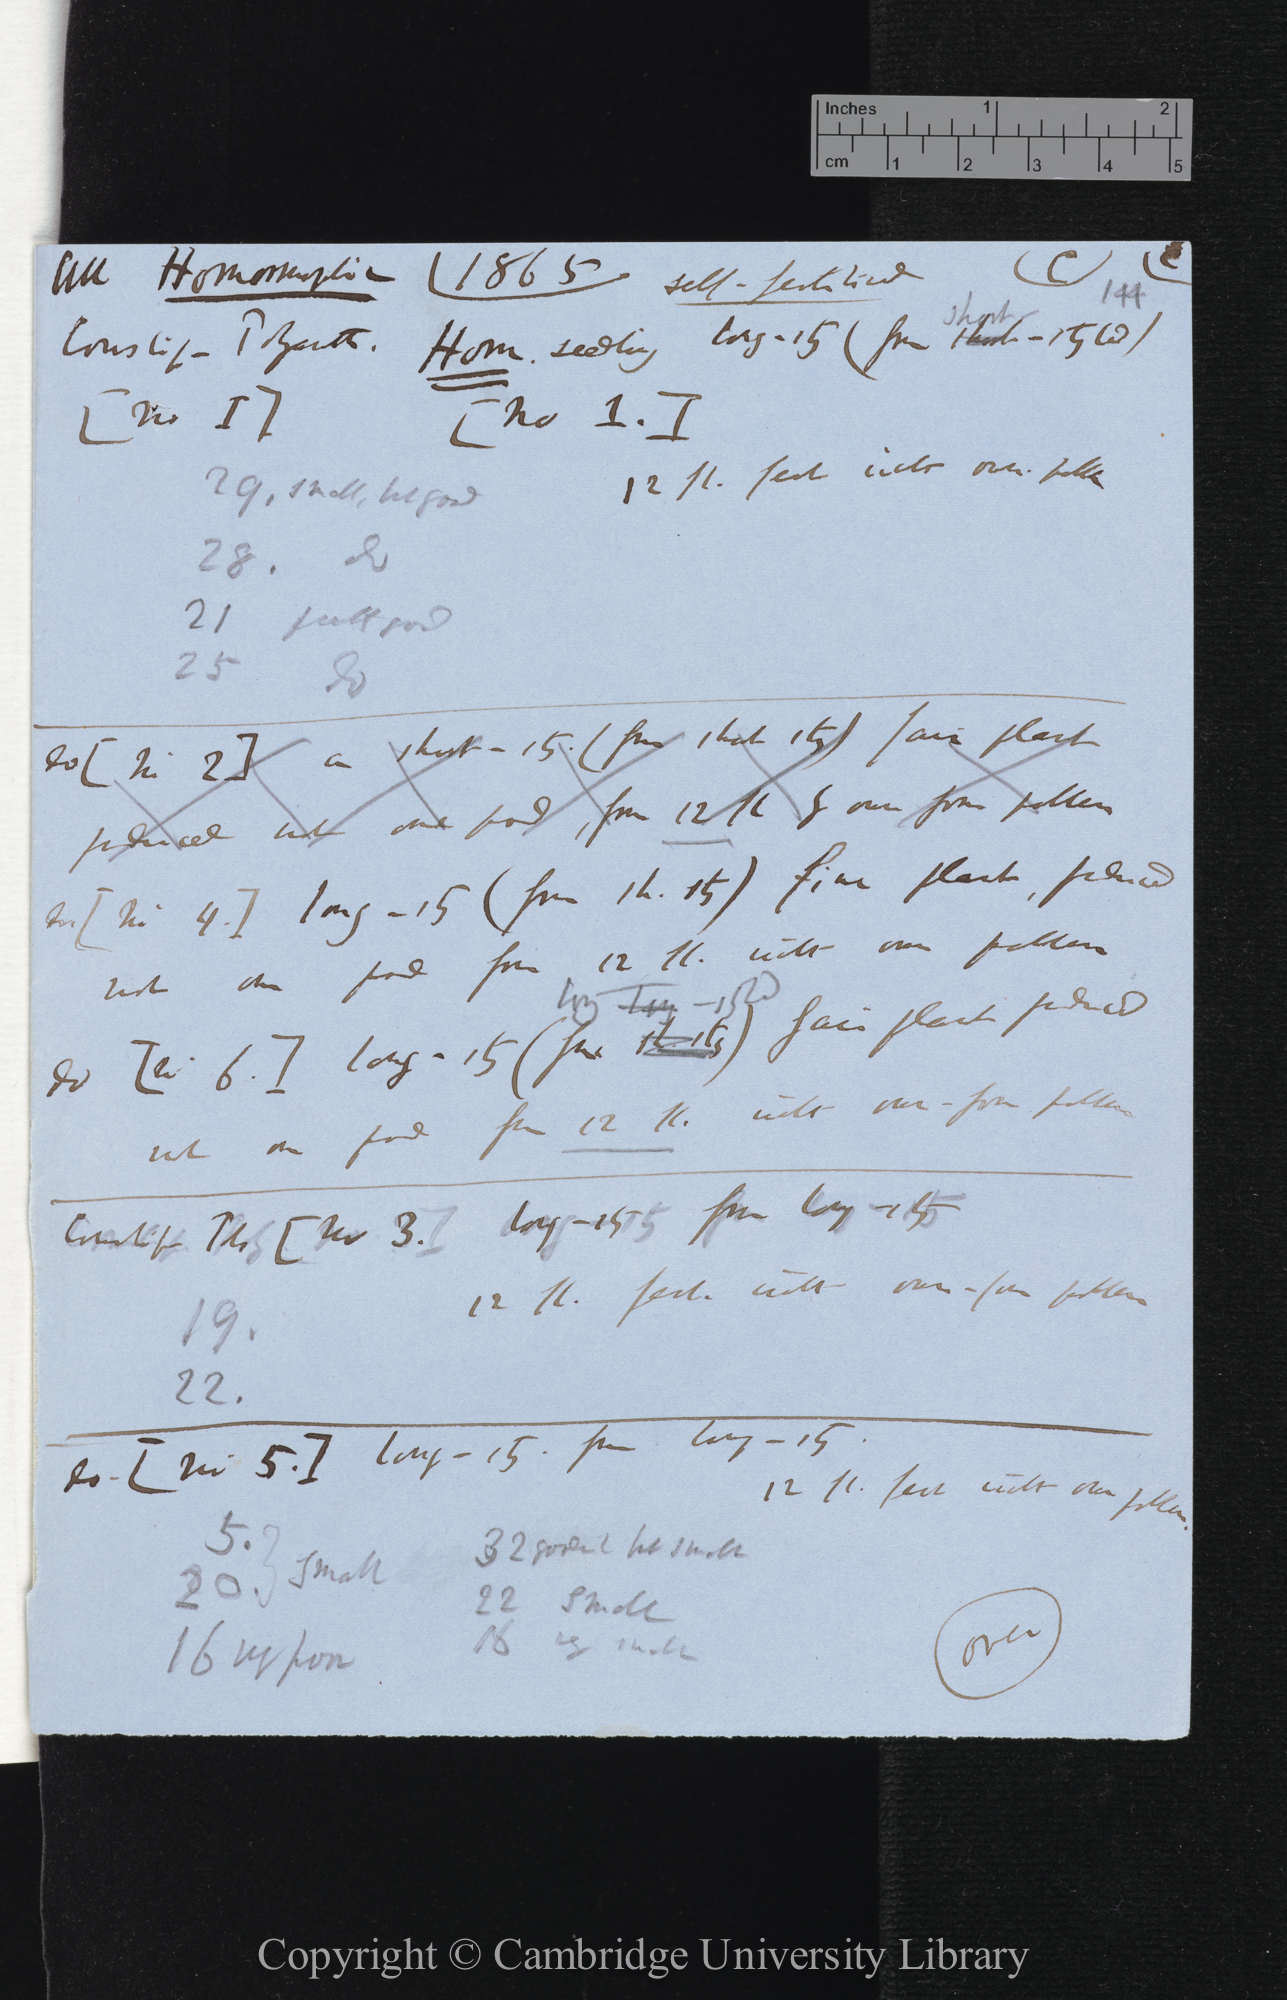 Inches 1 2
cm 1 2 3 4 5
All Homomorphic 1865 self-fertilised (C) C
144
short
Cowslip – Polyanth. Hom. seedling long-sty (from short-styled)
[No I] [No 1.]
29, small, but good 12 fl. fert with own pollen
28. do
21 good
25 do
do [No 2] a short-sty. (from short sty) fair plant
produced not one pod, from 12 fl of own form pollen
do [No 4.] long-sty (from sh. sty) fine plant, produced
not one pod from 12 fl. with own pollen
long long -styled
do [No 6.] long-sty (from sh. sty) fair plant produced
not one pod from 12 fl. with own-form pollen
Cowslip [No 3.] long-sty from long-sty
12 fl. fert. with own-form pollen
19.
22.
do – [No 5.] long-sty. from long-sty.
12 fl. fert with own pollen.
5. 32 good but small
20. small 22 small
16 very poor 16 small
over
Copyright © Cambridge University Library